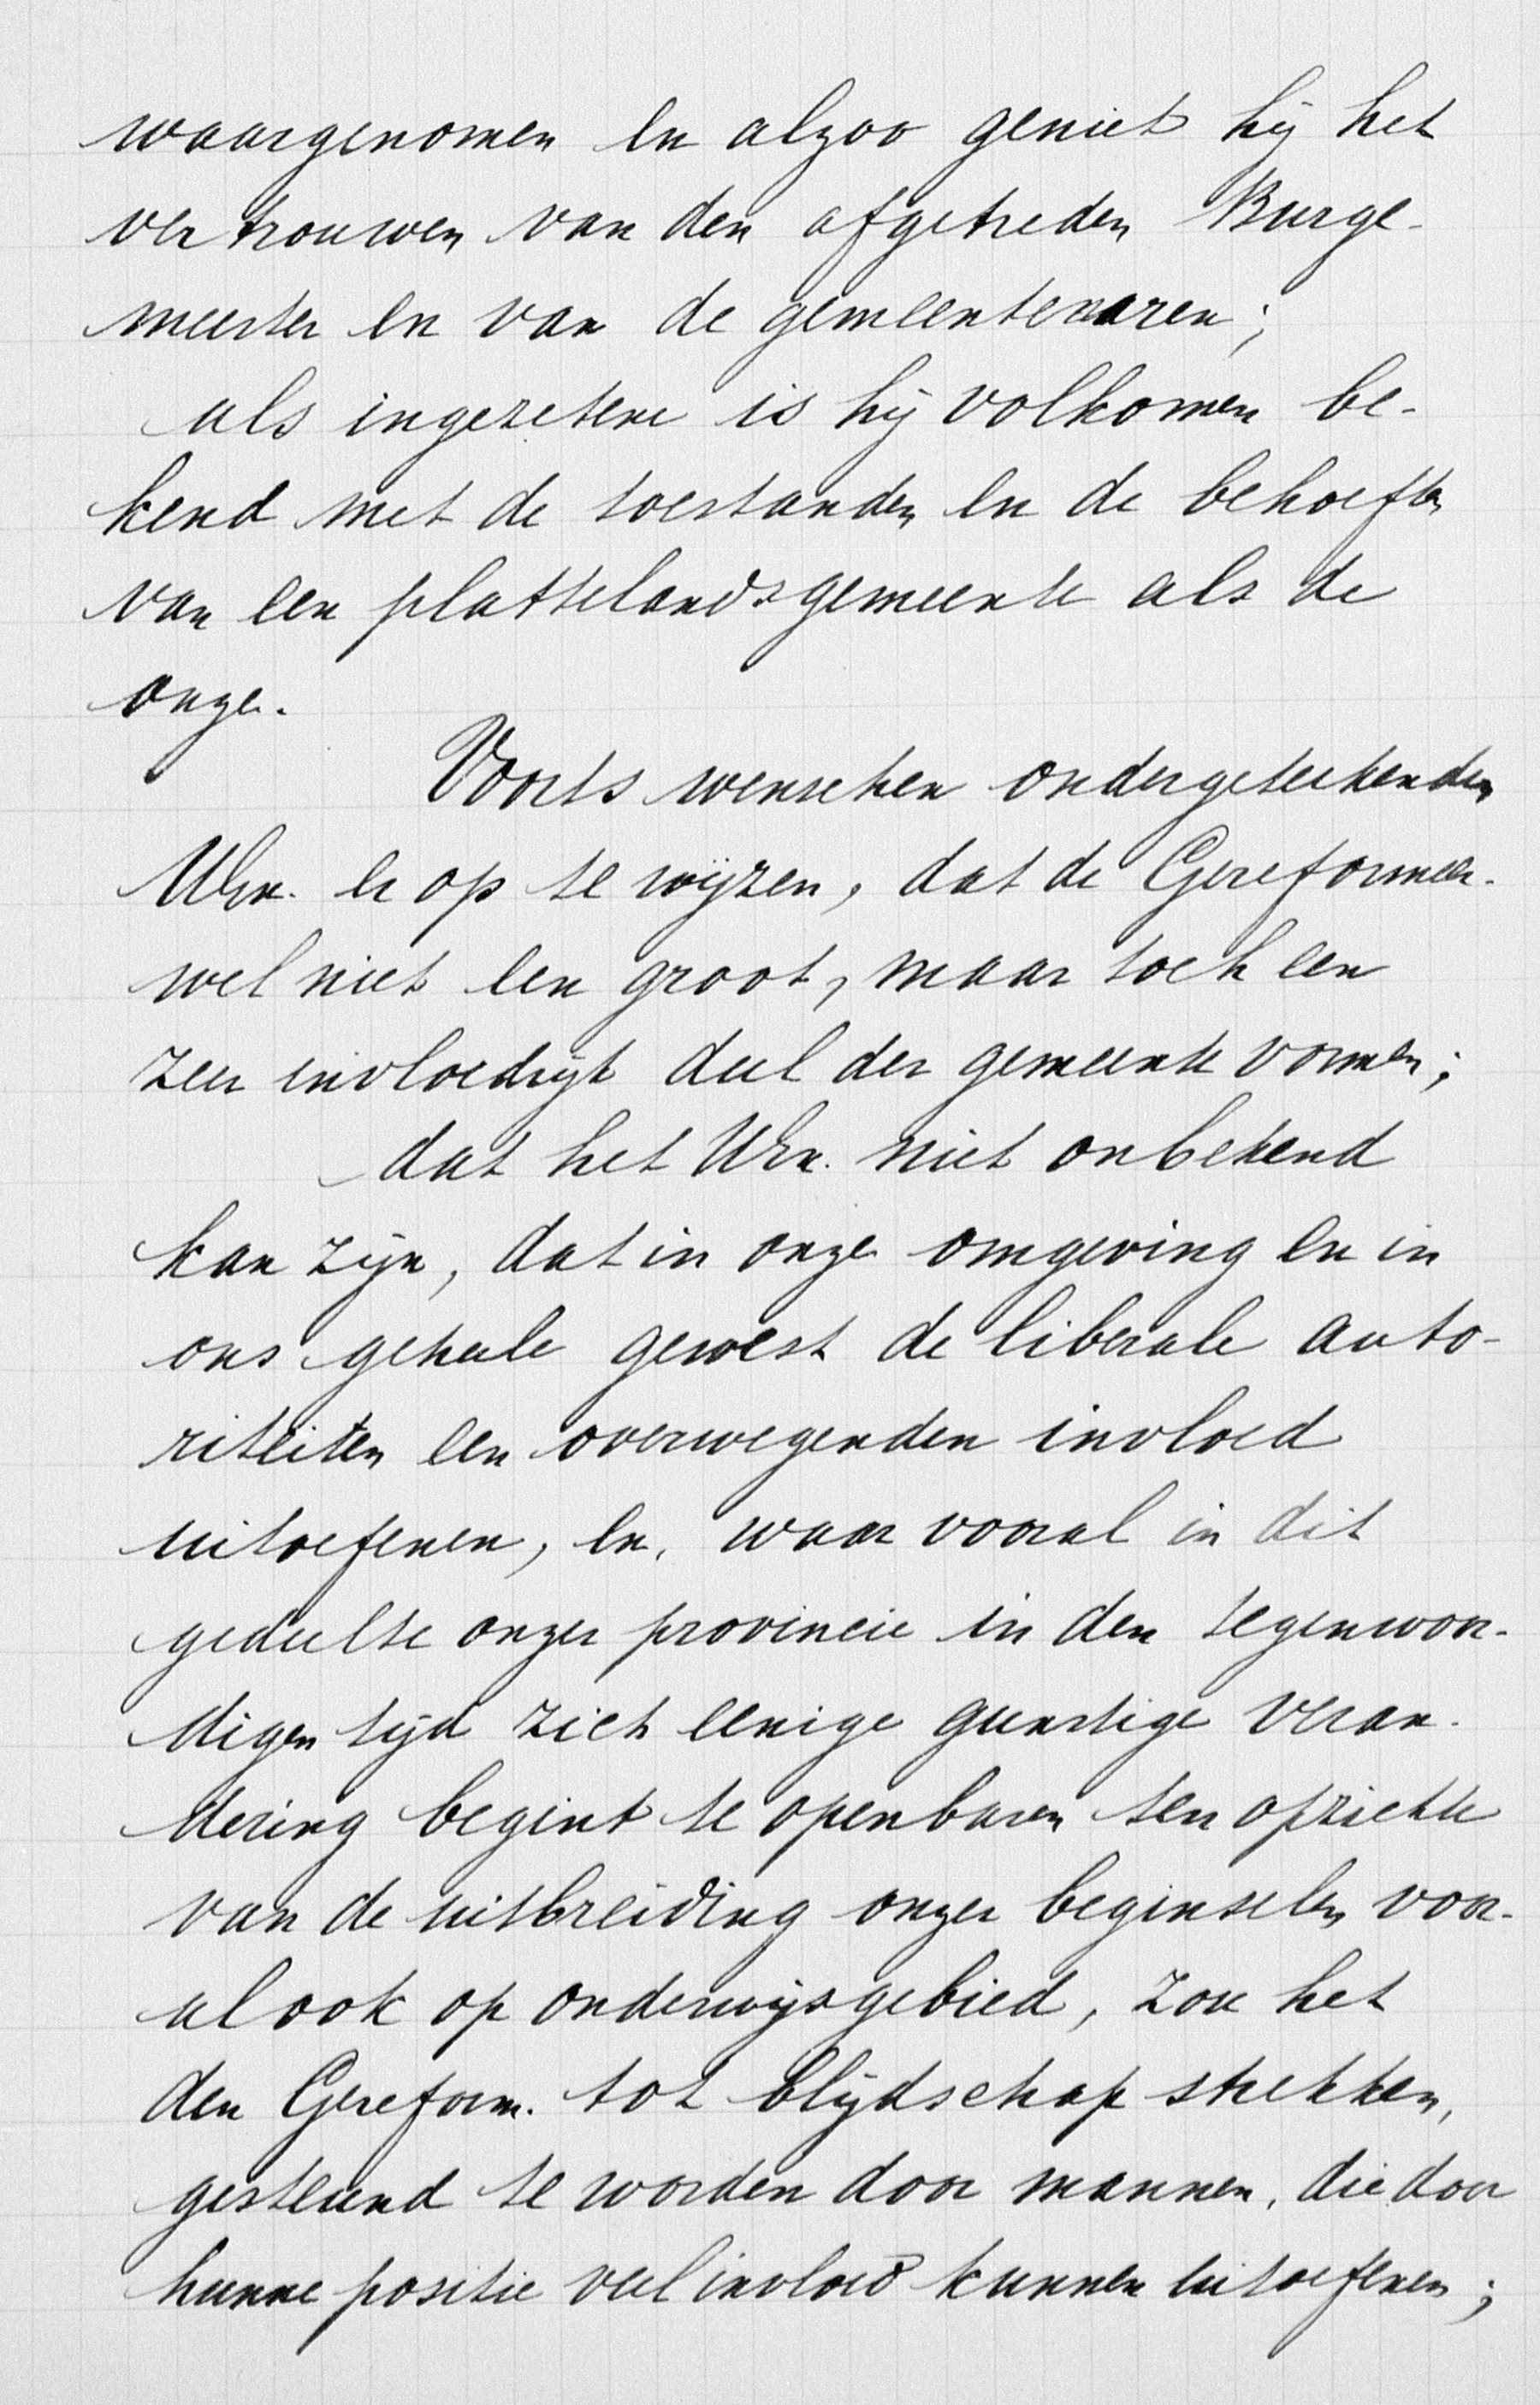 waargenomen en alzoo geniet hij het
vertrouwen van den afgetreden Burge-
meester en van de gemeentenaren;
als ingezetene is hij volkomen be-
kend met de toestanden en de behoeften
van een plattelandsgemeente als de
onze.
Voorts wenschen ondergeteekenden
UEn. er op te wijzen, dat de Gereformeer.
wel niet een groot, maar toch een
zeer invloedrijk deel der gemeente vormen;
dat het UEn. niet onbekend
kan zijn, dat in onze omgeving en in
ons geheele gewest de liberale auto-
riteiten een overwegenden invloed
uitoefenen, en, waar vooral in dit
gedeelte onzer provincie in den tegenwoor-
digen tijd zich eenige gunstige veran-
dering begint te openbaren ten opzichte
van de uitbreiding onzer beginselen voor-
al ook op onderwijsgebied, zou het
den Gereform. tot blijdschap strekken,
gesteund te worden door mannen, die door
hunne positie veel invloed kunnen uitoefenen;